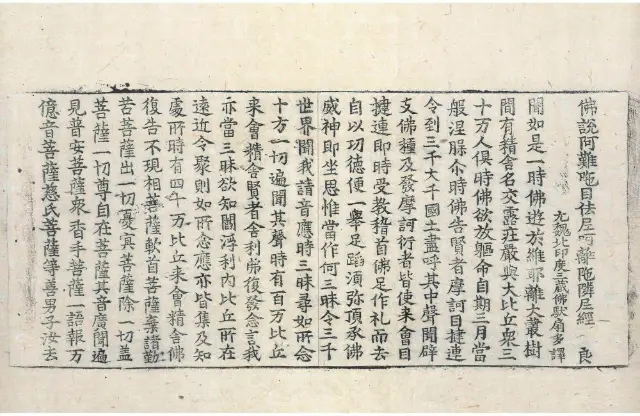 佛說阿難陁目佉尼呵離陁隣尼經 良
元魏北印度三藏佛馱扇多譯
聞如是一時佛遊於維耶離大叢樹
間有精舍名交露莊嚴與大比丘衆三
十万人俱時佛欲放軀命自期三月當
般涅槃尒時佛告賢者摩訶目揵連
令到三千大千國土盡呼其中聲聞辟
支佛種及發摩訶衍者皆使来會目
揵連即時受教稽首佛足作礼而去
自以功德便一舉足蹈湏弥頂承佛
威神即坐思惟當作何三昧令三千
世界聞我請音應時三昧尋如所念
十方一切遍聞其聲時有百万比丘
来會精舍賢者舍利弗復發念言我
亦當三昧欲知閻浮利内比丘所在
遠近令聚則如所念應亦皆集及知
處所時有四十万比丘来會精舍佛
復告不現相菩薩軟首菩薩棄諸勤
苦菩薩出一切憂冥菩薩除一切蓋
菩薩一切尊自在菩薩其音廣聞遍
見普安菩薩衆香手菩薩一語報万
億音菩薩慈氏菩薩等善男子汝去